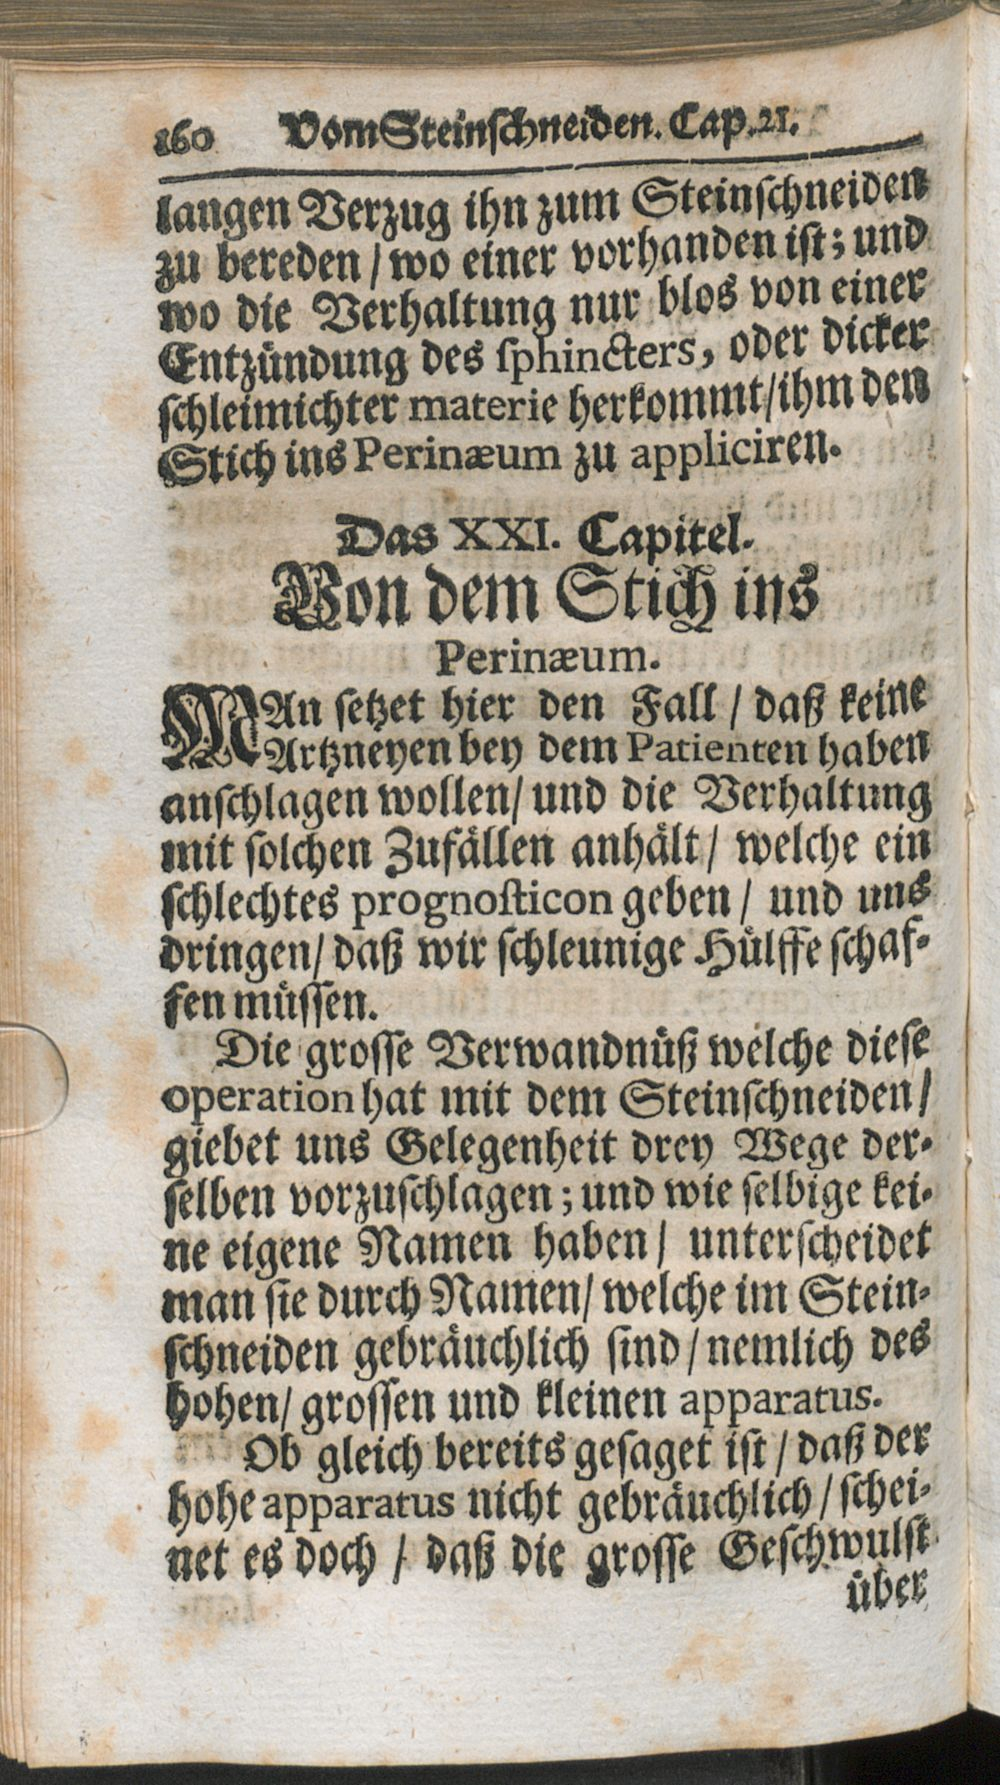 160 Vom Steinschneiden. Cap. 21.
langen Verzug ihn zum Steinschneiden
zu bereden / wo einer vorhanden ist; und
wo die Verhaltung nur blos von einer
Entzündung des sphincters, oder dicker
schleimichter materie herkommt / ihm den
Stich ins Perinæum zu appliciren.
Das XXI. Capitel.
Von dem Stich ins
Perinæum.
MAn setzet hier den Fall / daß keine
Artzneyen bey dem Patienten haben
anschlagen wollen / und die Verhaltung
mit solchen Zufällen anhält / welche ein
schlechtes prognosticon geben / und uns
dringen / daß wir schleunige Hülffe schaf-
fen müssen.
Die grosse Verwandnüß welche diese
operation hat mit dem Steinschneiden /
giebet uns Gelegenheit drey Wege der-
selben vorzuschlagen; und wie selbige kei-
ne eigene Namen haben / unterscheidet
man sie durch Namen / welche im Stein-
schneiden gebräuchlich sind / nemlich des
hohen / grossen und kleinen apparatus.
Ob gleich bereits gesaget ist / daß der
hohe apparatus nicht gebräuchlich / schei-
net es doch / daß die grosse Geschwulst
über